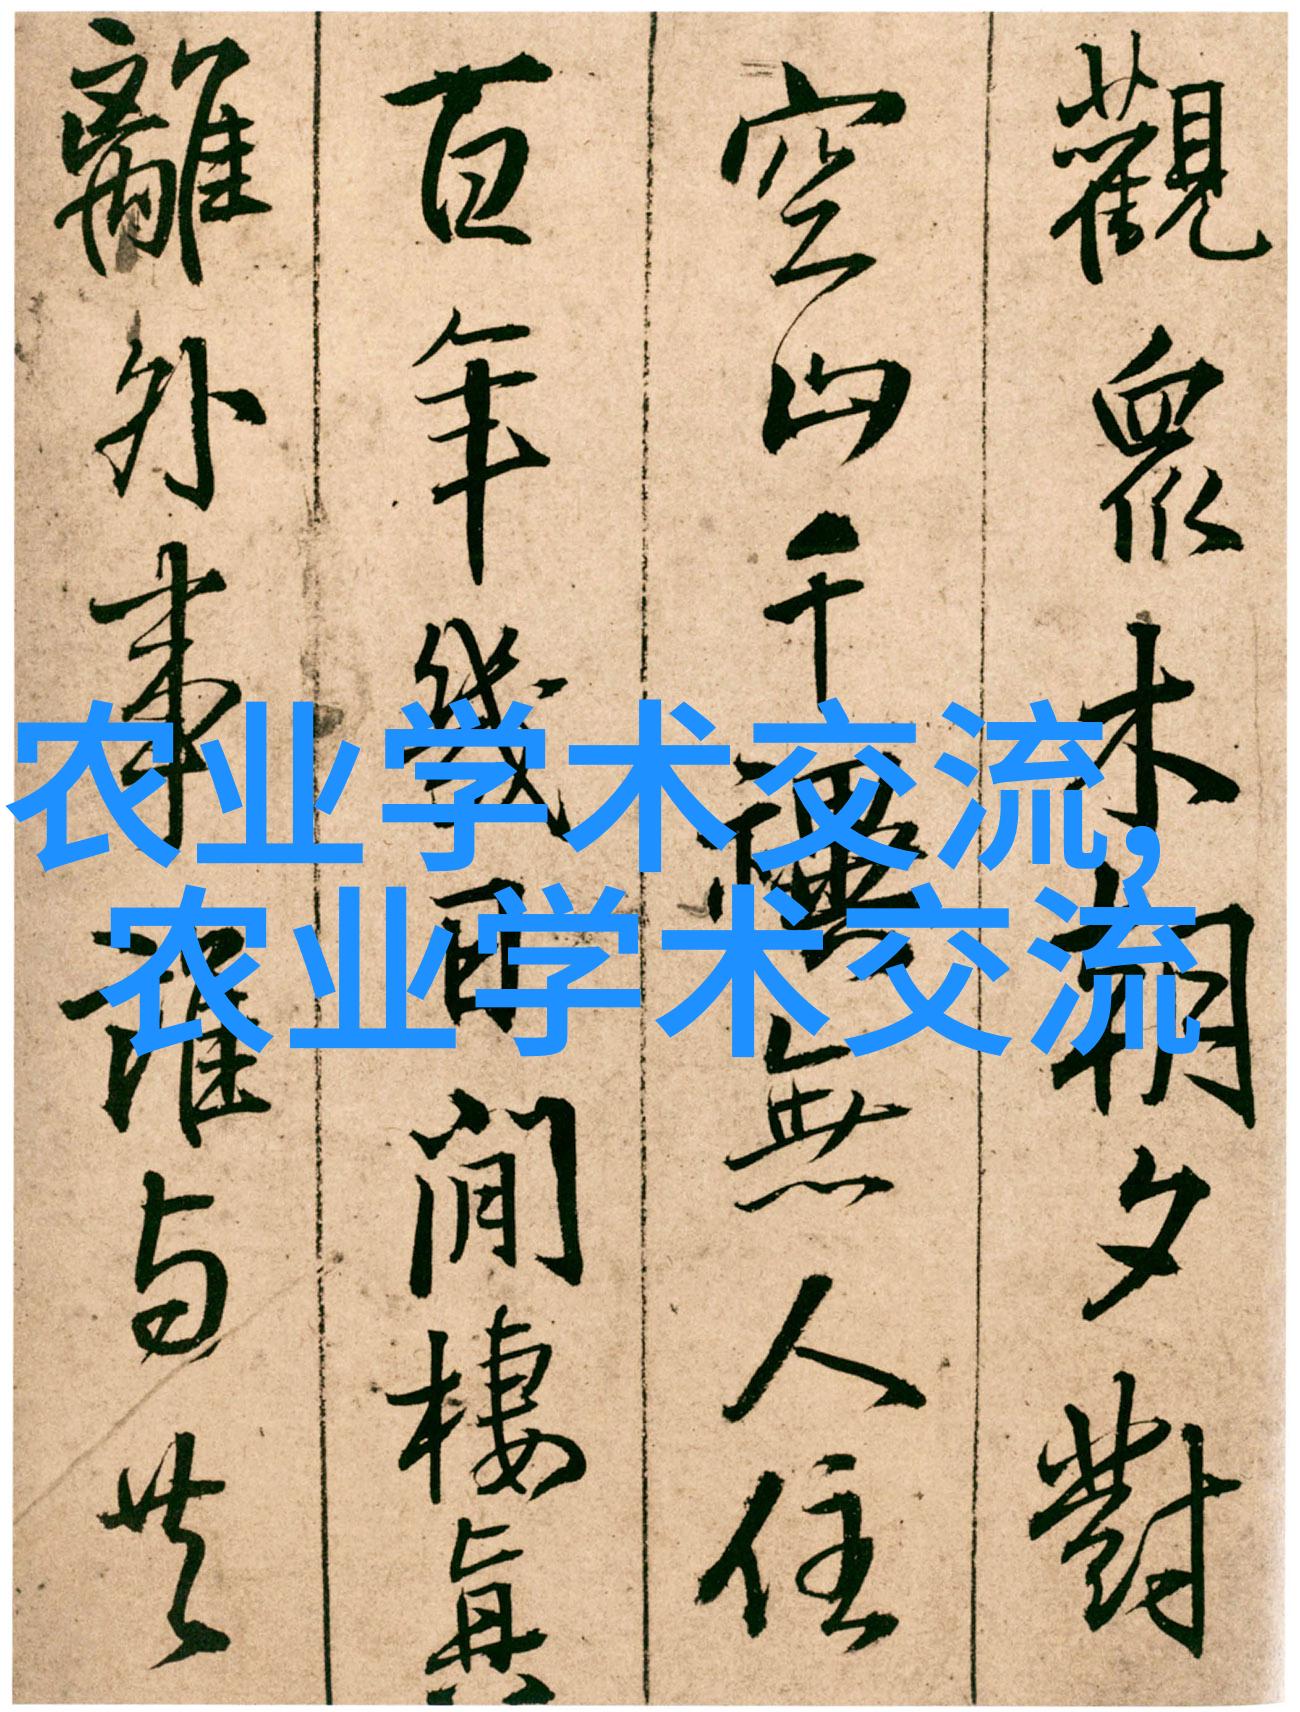 觀眾木朝夕對
空山千無人住
百年幾閒棲真
離外事誰与共
农业学术交流,
农业学术交流